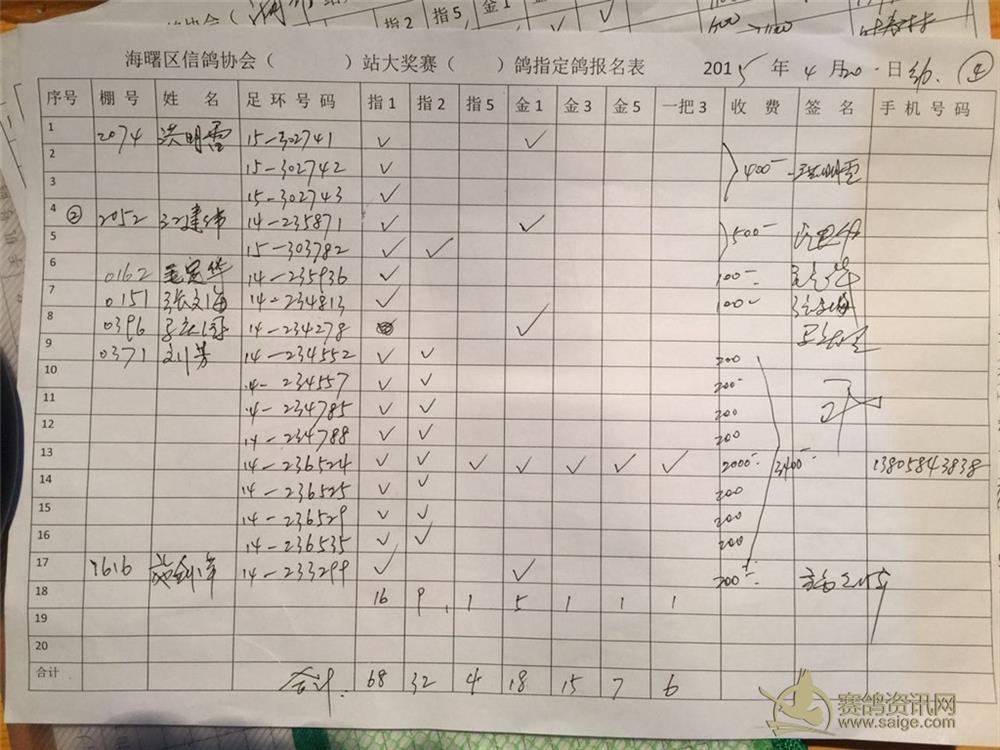 指2 指5 金1
海曙区信鸽协会（ ）站大奖赛（ ）鸽指定鸽报名表 2015 年 4 月 20 日 ④
序号 棚号 姓 名 足环号码 指1 指2 指5 金1 金3 金5 一把3 收 费 签 名 手机号码
1 2074 洪明雷 15-302741 ✓ ✓
2 15-302742 ✓ 400-
3 15-302743 ✓
4 ② 2052 14-235871 ✓ ✓ 500-
5 15-303782 ✓ ✓
6 0162 14-235936 ✓ 100-
7 0151 张文海 14-234813 ✓ 100-
8 0396 14-234278 ✓
9 0371 刘芳 14-234552 ✓ ✓ 200
10 14-234557 ✓ ✓ 200-
11 14-234785 ✓ ✓ 200
12 14-234788 ✓ ✓ 200
13 14-236524 ✓ ✓ ✓ ✓ ✓ ✓ ✓ 2000- 3400- 13805843838
14 14-236525 ✓ ✓ 200
15 14-236529 ✓ ✓ 200
16 14-236535 ✓ ✓ 200
17 1616 14-233299 ✓ ✓ 200-
18 16 9 1 5 1 1 1
19
20
合计 合计. 68 32 4 18 15 7 6
赛鸽资讯网
www.saige.com